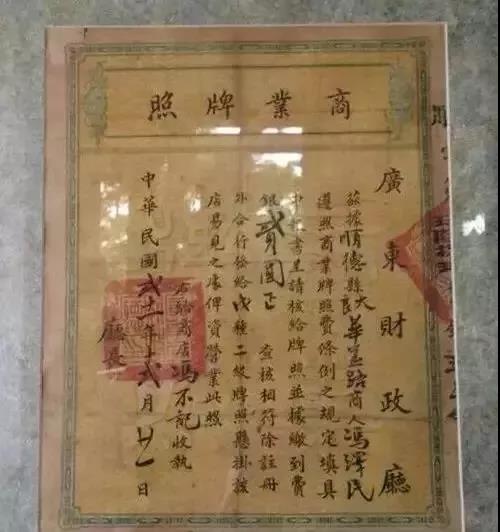 商業牌照
廣東財政廳
茲據順德縣大良華蓋路商人馮澤民
遵照商業牌照費條例之規定填具
申報書呈請核給牌照並據繳到費
銀貳圓正 查核相符除註冊
外合行發給戊種二級牌照懸掛該
店易見之處俾資營業此照
右給商店馮不記收執
廳長
中華民國弍十一年十弍月廿一日